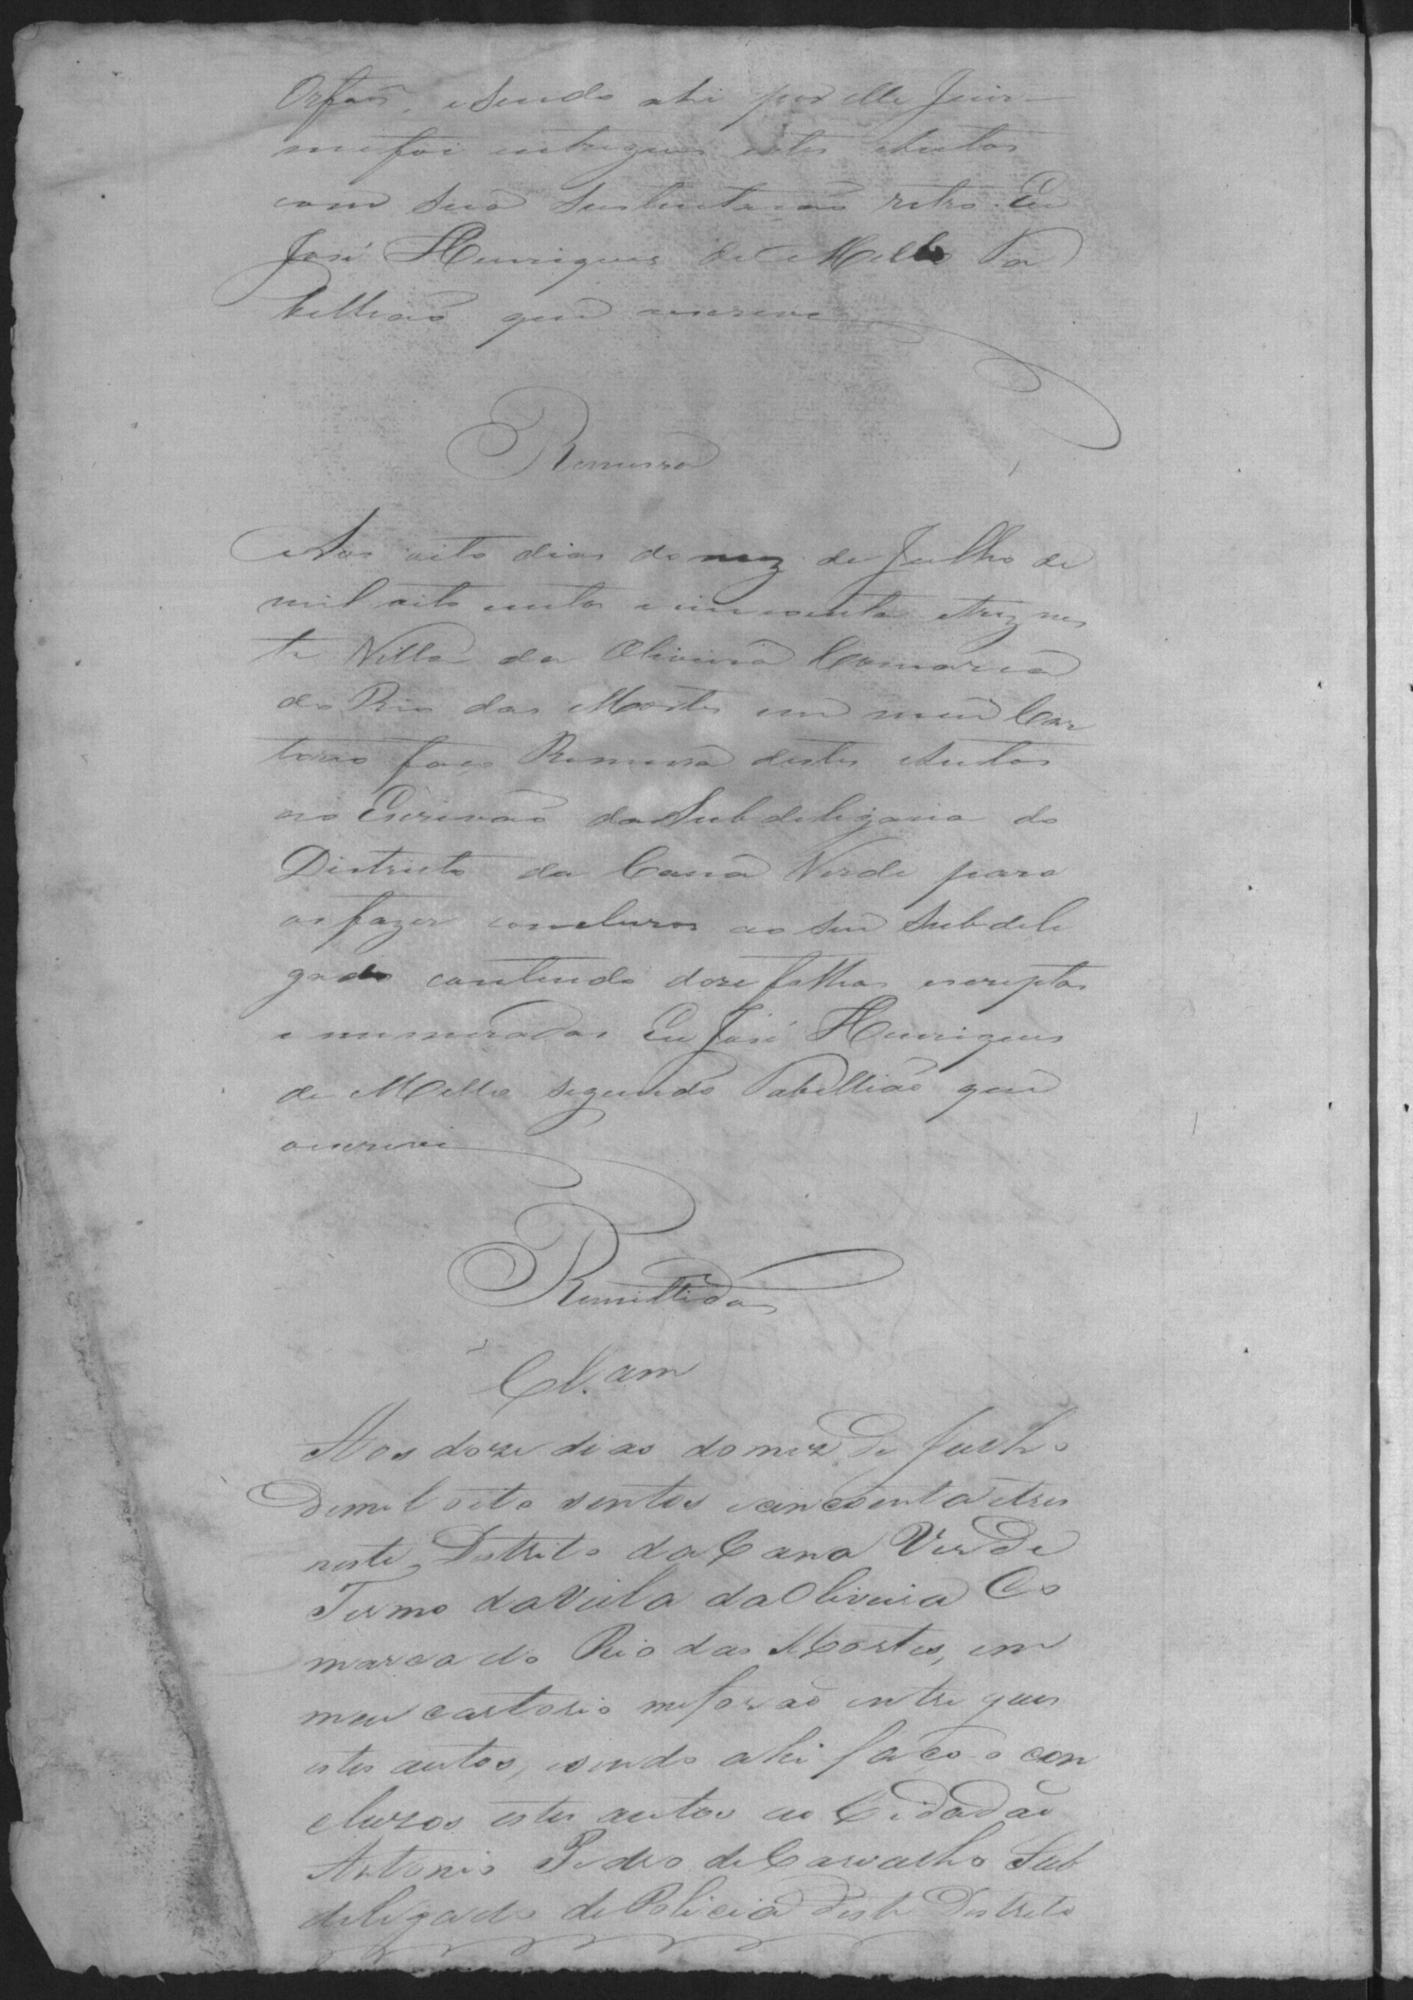 Orfãos, e sendo ahi por elle Juis
me foi entregues estes Autos
com sua sustentação retro. Eu
José Henriques de Mello Ta
bellião que escrevi
Remessa
Aos oito dias do mez de Julho de
mil oito centos e cincoenta e trez nes
ta Villa da Oliveira Comarca
do Rio das Mortes em meu Car
torio faço Remessa destes Autos
ao Escrivão da Subdelegacia do
Districto da Canna Verde para
os fazer concluzos ao seu Subdele
gado contendo doze folhas escriptas
e numeradas Eu José Henriques
de Mello segundo Tabellião que
o escrevi
Remettidos
Cl.am
Aos doze dias do mez de Julho
de mil oito sentos e cincoenta e tres
neste Distrito da Cana Verde
Termo da Villa da Oliveira Co
marca do Rio das Mortes, em
meu cartorio me forão entregues
estes autos, e sendo ahi faço con
cluzos estes autos ao Cidadão
Antonio Pedro de Carvalho Sub
deligado de Policia deste Distrito